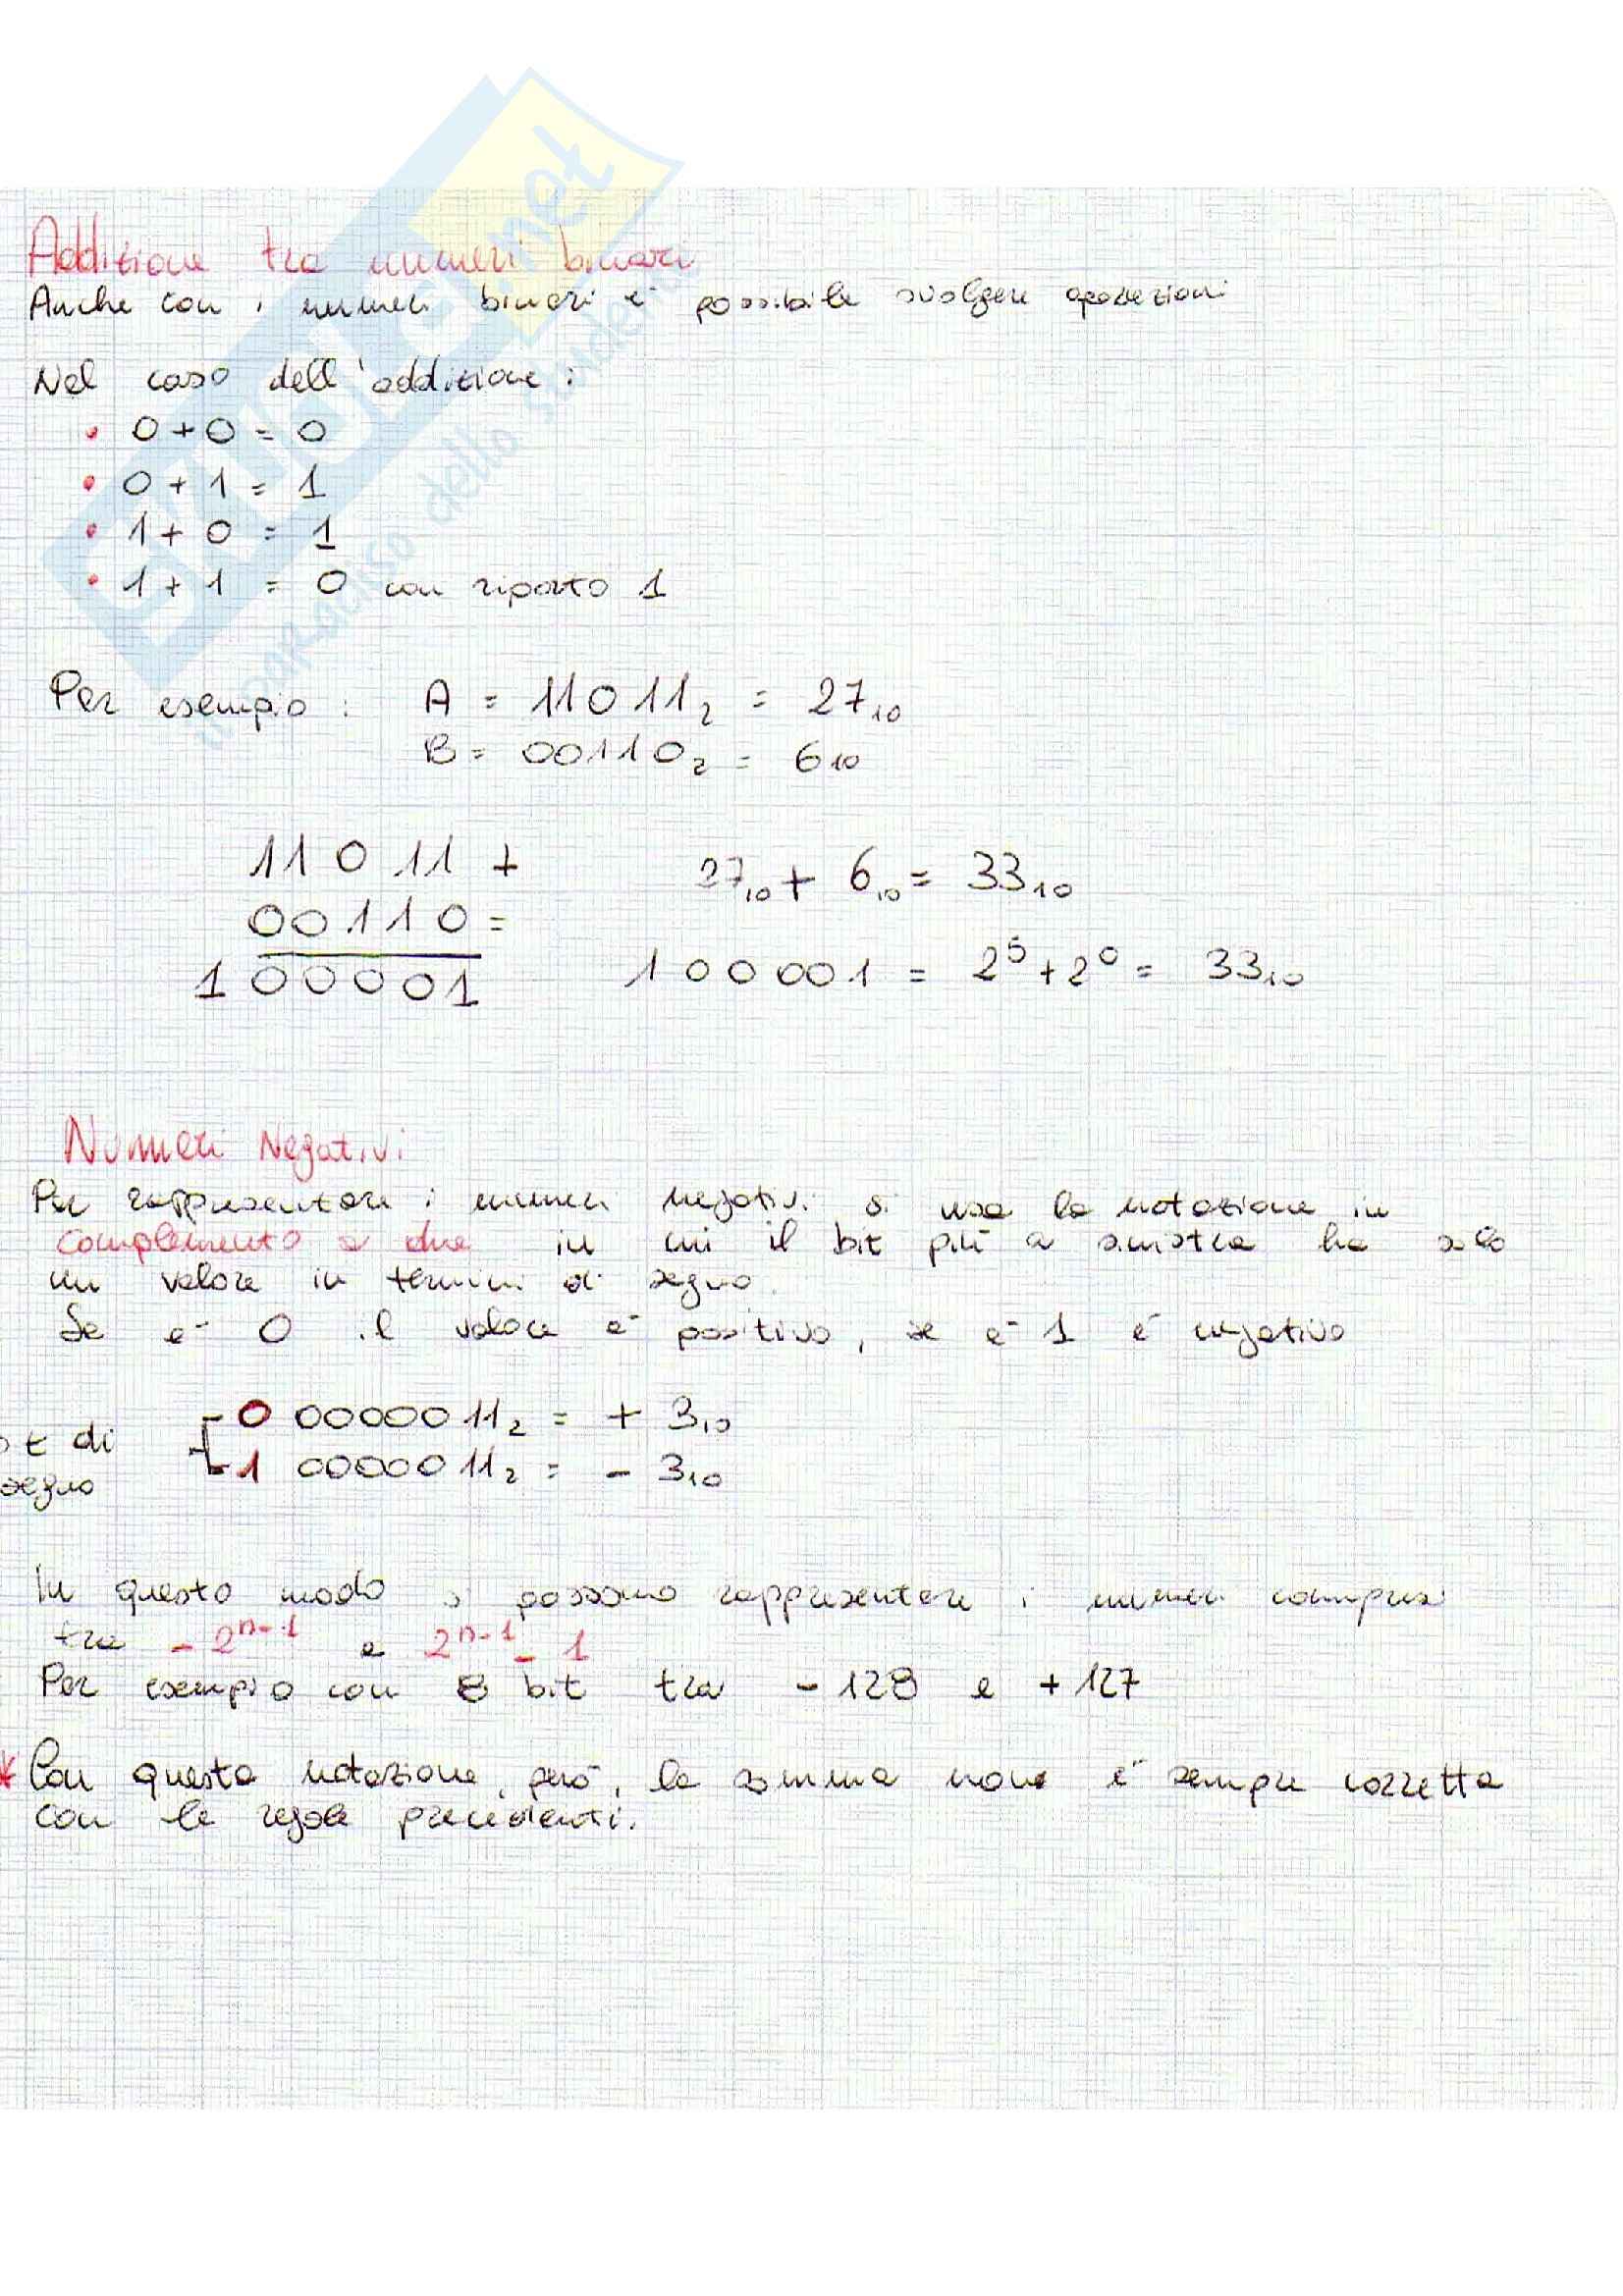 SKUOLA.net
il paradiso dello studente
Addizione tra numeri binari
Anche con i numeri binari è possibile svolgere operazioni
Nel caso dell'addizione:
• 0 + 0 = 0
• 0 + 1 = 1
• 1 + 0 = 1
• 1 + 1 = 0 con riporto 1
Per esempio: A = 11011₂ = 27₁₀
B = 00110₂ = 6₁₀
11011 +
00110 =
100001
27₁₀ + 6₁₀ = 33₁₀
100001 = 2⁵ + 2⁰ = 33₁₀
Numeri Negativi
Per rappresentare i numeri negativi si usa la notazione in
complemento a due in cui il bit più a sinistra ha solo
un valore in termini di segno.
Se è 0 il valore è positivo, se è 1 è negativo
di
segno
0 0000011₂ = + 3₁₀
1 0000011₂ = - 3₁₀
In questo modo si possono rappresentare i numeri compresi
tra - 2ⁿ⁻¹ e 2ⁿ⁻¹ - 1
Per esempio con 8 bit tra - 128 e + 127
* Con questa notazione, però, la somma non è sempre corretta
con le regole precedenti.